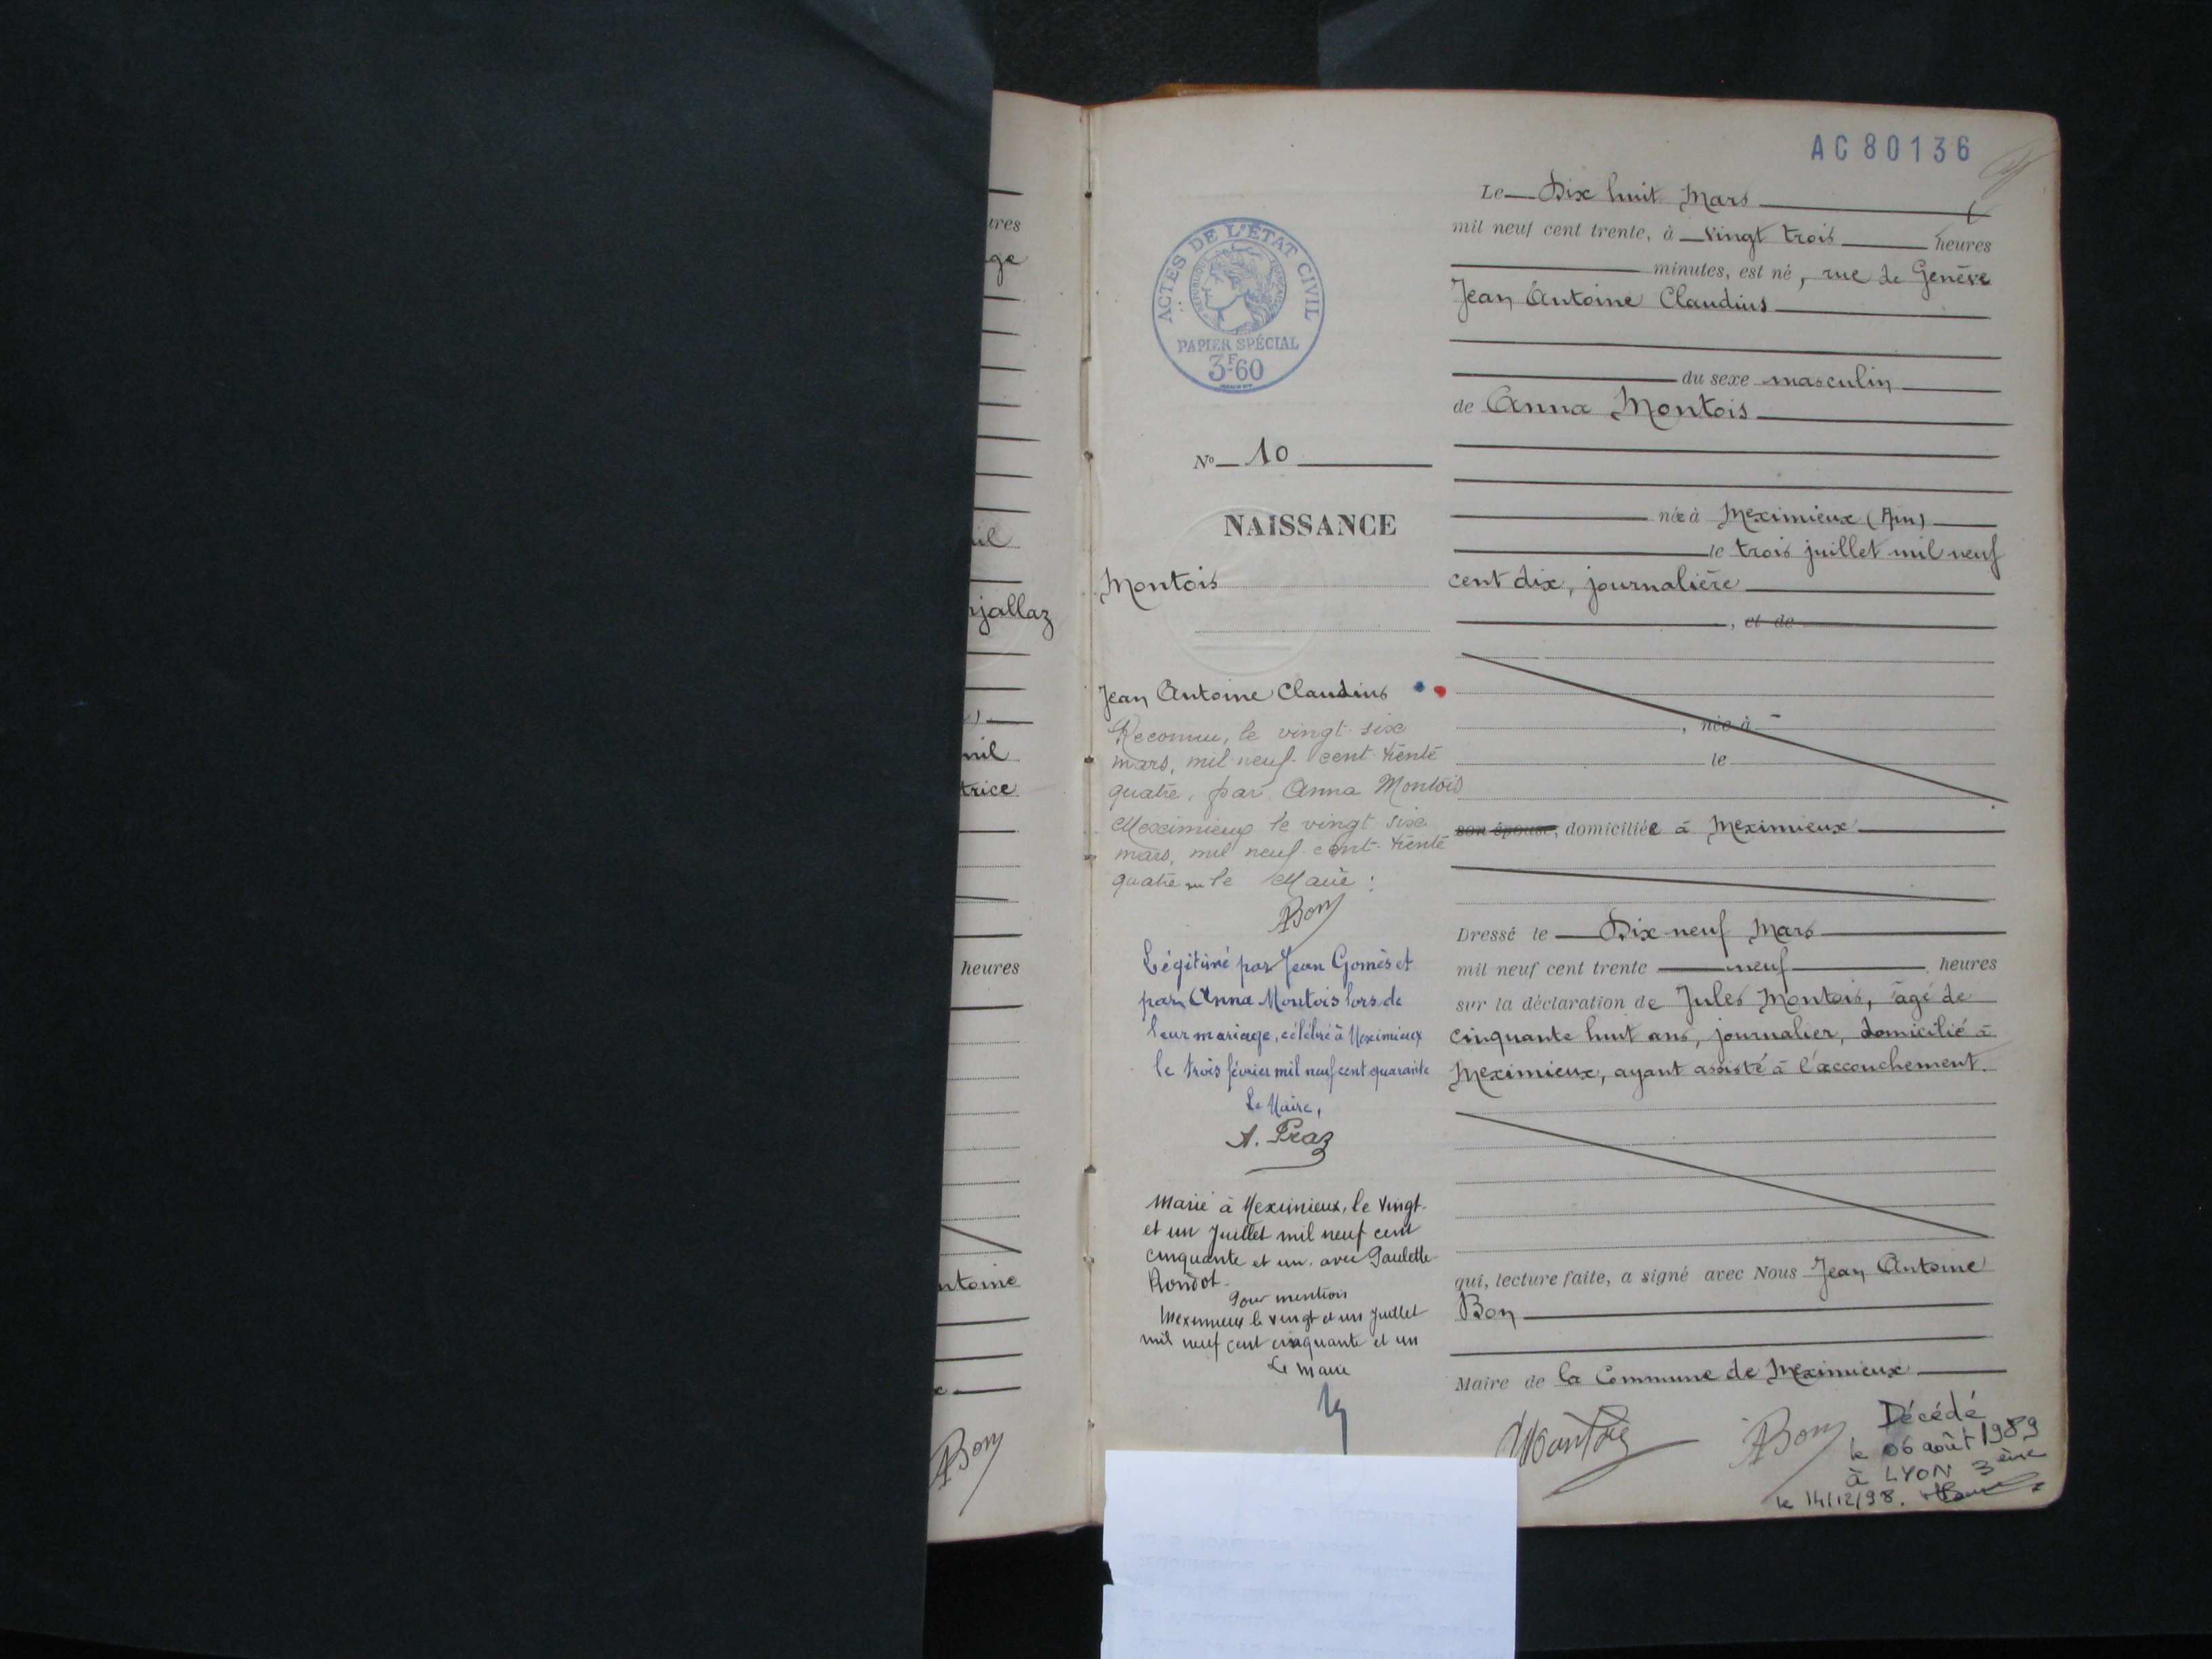 ures
ge
il
njallaz
mil
trice
heures
ntoine
Bon
AC 80136
ACTES DE L'ÉTAT CIVIL
RÉPUBLIQUE FRANÇAISE
PAPIER SPÉCIAL
3F60
N° 10
NAISSANCE
Montois
Jean Antoine Claudius
Reconnu, le vingt-six
mars, mil neuf cent trente
quatre, par Anna Montois
Meximieux le vingt six
mars, mil neuf cent trente
quatre le Maire :
Bon
Légitimé par Jean Gomès et
par Anna Montois lors de
leur mariage, célébré à Meximieux
le trois février mil neuf cent quarante
Le Maire,
A. Praz
Marié à Meximieux, le vingt
et un Juillet mil neuf cent
cinquante et un avec Paulette
Rondot.
Pour mention
Meximieux le vingt et un Juillet
mil neuf cent cinquante et un
Le Maire
Le Dix huit Mars
mil neuf cent trente, à vingt trois heures
minutes, est né, rue de Genève
Jean Antoine Claudius
du sexe masculin
de Anna Montois
née à Meximieux (Ain)
le trois juillet mil neuf
cent dix, journalière
, et de
, née à
le
son épouse, domiciliée à Meximieux
Dressé le Dix-neuf Mars
mil neuf cent trente neuf heures
sur la déclaration de Jules Montois, âgé de
cinquante huit ans, journalier, domicilié à
Meximieux, ayant assisté à l'accouchement.
qui, lecture faite, a signé avec Nous Jean Antoine
Bon
Maire de la Commune de Meximieux
Montois
Bon
Décédé
le 06 août 1989
à LYON 3ème
le 14/12/98.